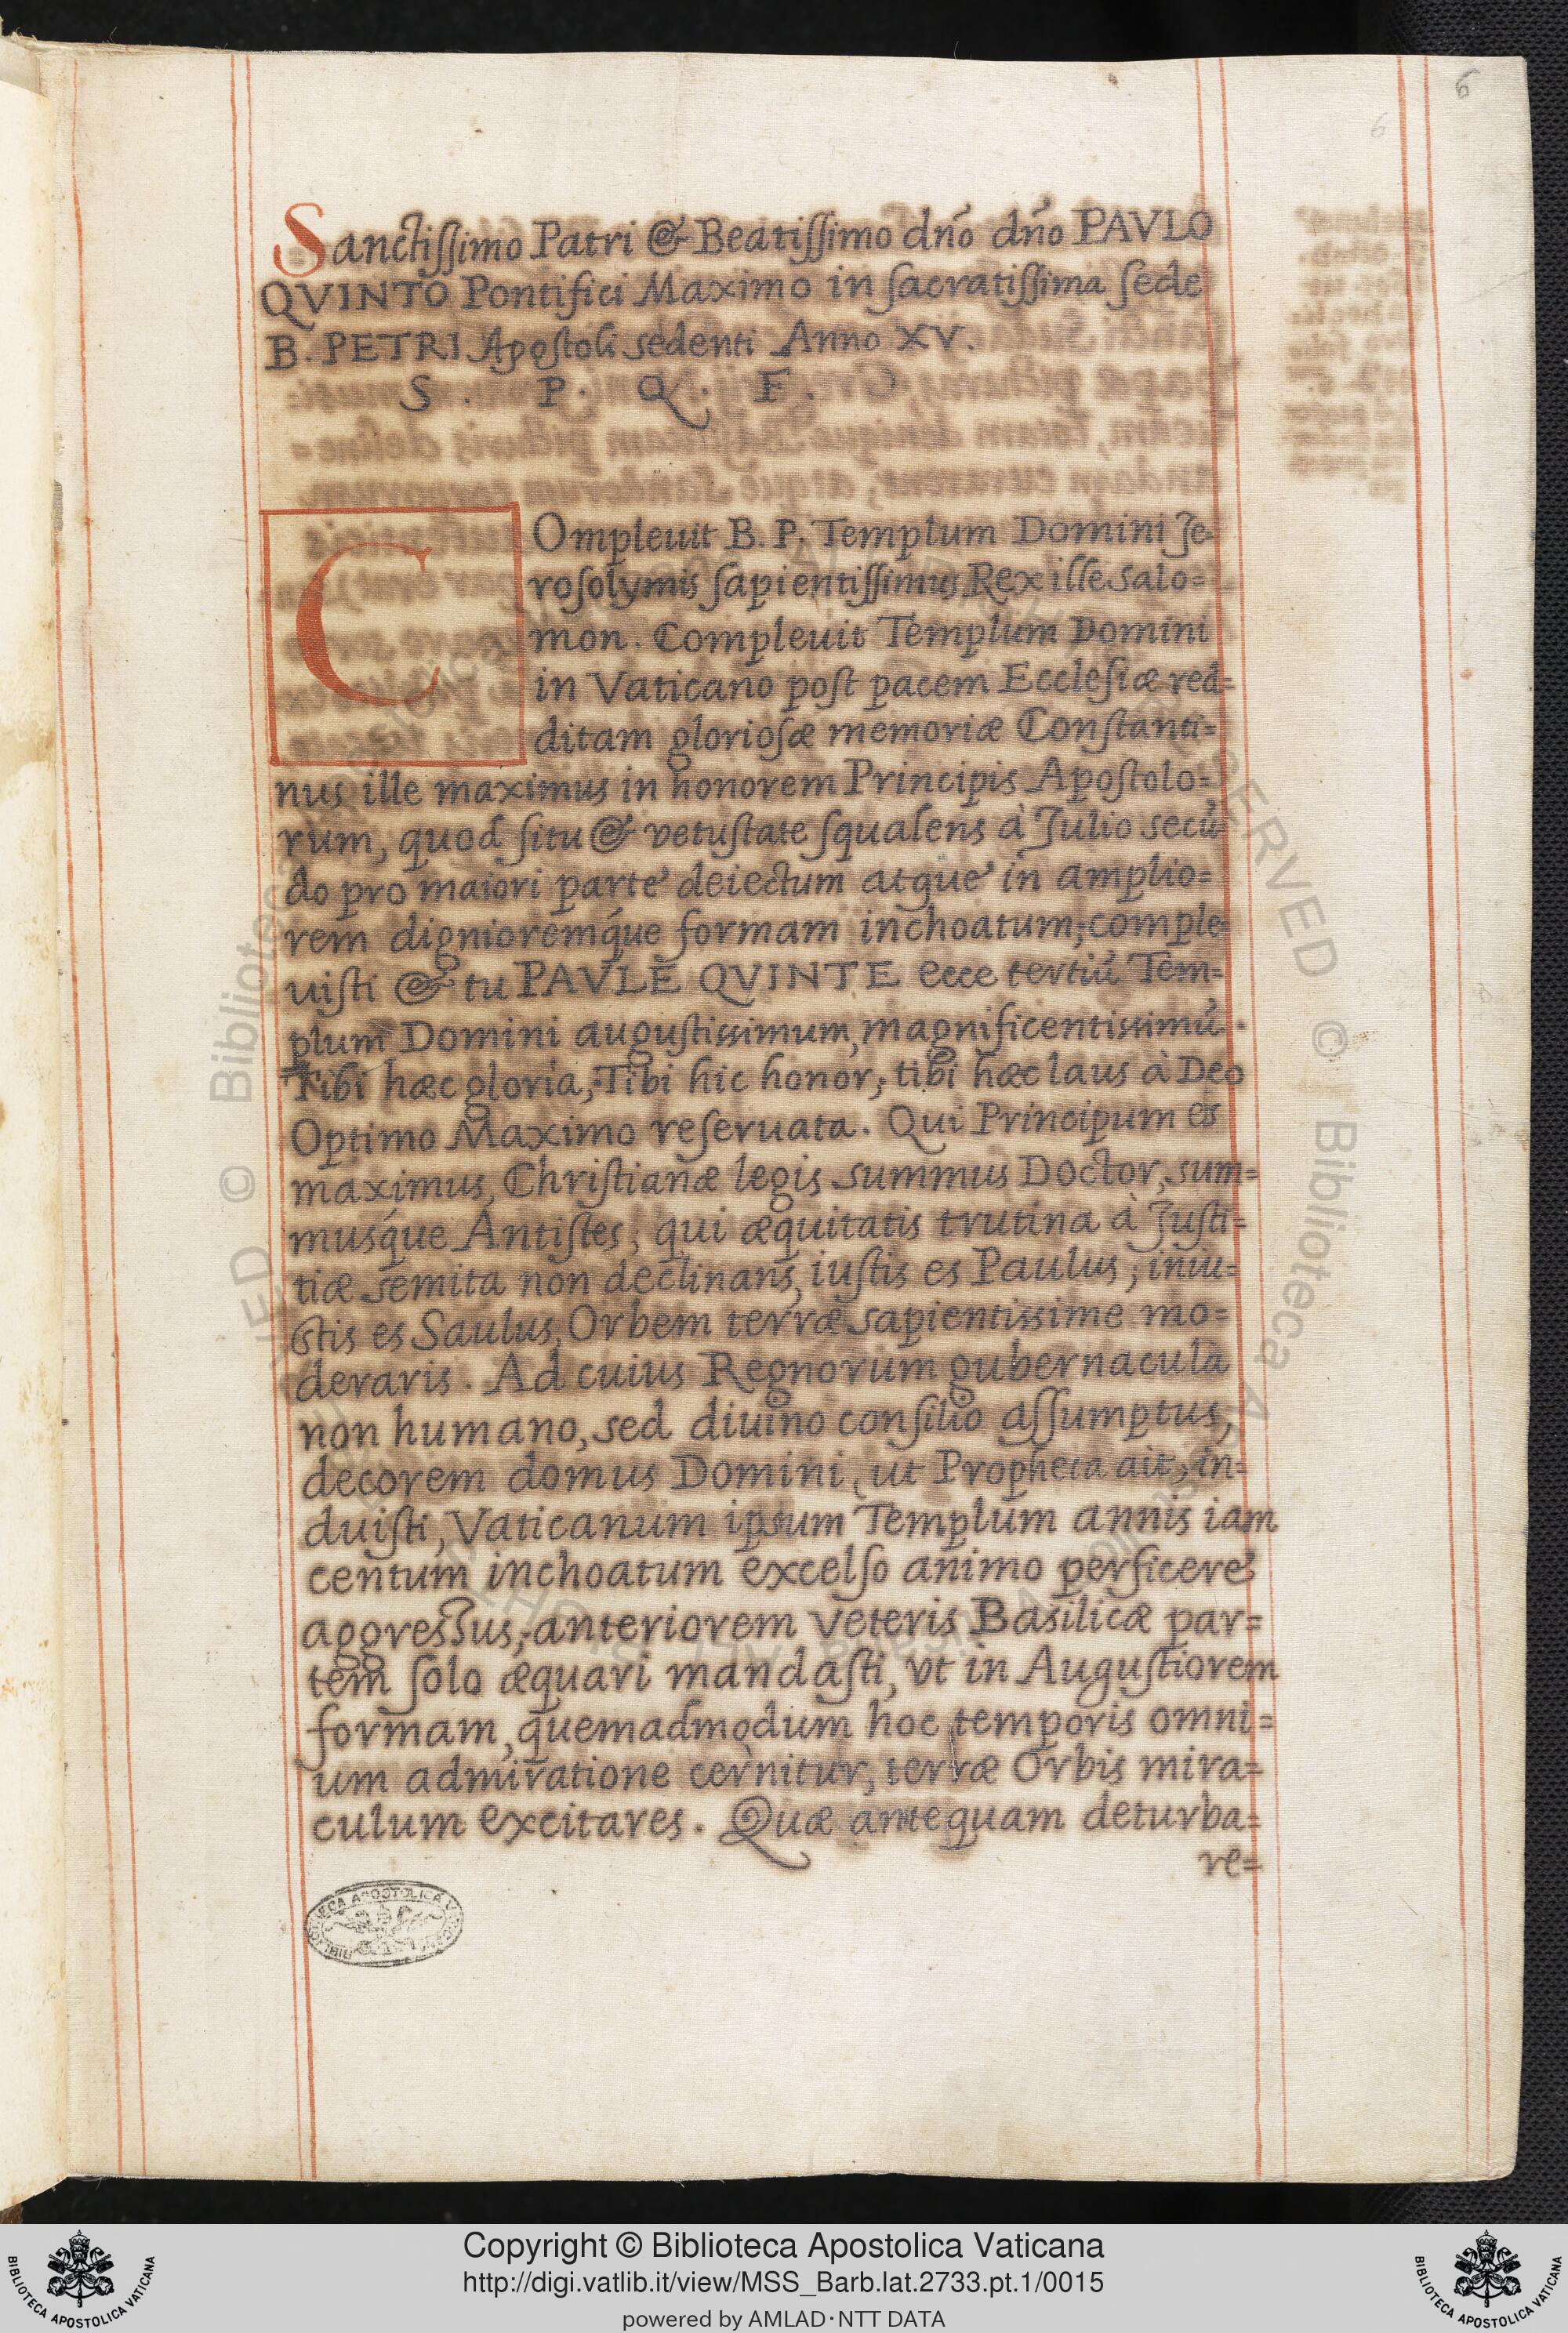 6
6
Sanctissimo Patri & Beatissimo dno dno PAVLO
QVINTO Pontifici Maximo in sacratissima sede
B. PETRI Apostoli sedenti Anno XV.
S. P. Q. F.
COmpleuit B. P. Templum Domini Je-
rosolymis sapientissimus Rex ille Salo=
mon. Compleuit Templum Domini
in Vaticano post pacem Ecclesiæ red=
ditam gloriosæ memoriæ Constanti=
nus ille maximus in honorem Principis Apostolo=
rum, quod situ & vetustate squalens à Julio secũ
do pro maiori parte deiectum atque in amplio=
rem dignioremq́ue formam inchoatum; comple
uisti & tu PAVLE QVINTE ecce tertiũ Tem=
plum Domini augustissimum, magnificentissimũ.
Tibi hæc gloria, Tibi hic honor, tibi hæc laus à Deo
Optimo Maximo reseruata. Qui Principum es
maximus, Christianæ legis summus Doctor, sum=
musq́ue Antistes; qui æquitatis trutina à Justi=
tiæ semita non declinans, iustis es Paulus; iniu=
stis es Saulus, Orbem terræ sapientissime mo=
deraris. Ad cuius Regnorum gubernacula
non humano, sed diuino consilio assumptus,
decorem domus Domini, ut Propheta ait, in=
duisti, Vaticanum ipsum Templum annis iam
centum inchoatum excelso animo perficere
aggressus, anteriorem veteris Basilicæ par=
tem solo æquari mandasti, vt in Augustiorem
formam, quemadmodum hoc temporis omni=
um admiratione cernitur, terræ Orbis mira=
culum excitares. Quæ antequam deturba=
re=
Copyright © Biblioteca Apostolica Vaticana
http://digi.vatlib.it/view/MSS_Barb.lat.2733.pt.1/0015
powered by AMLAD·NTT DATA
BIBLIOTECA APOSTOLICA VATICANA
BIBLIOTECA APOSTOLICA VATICANA